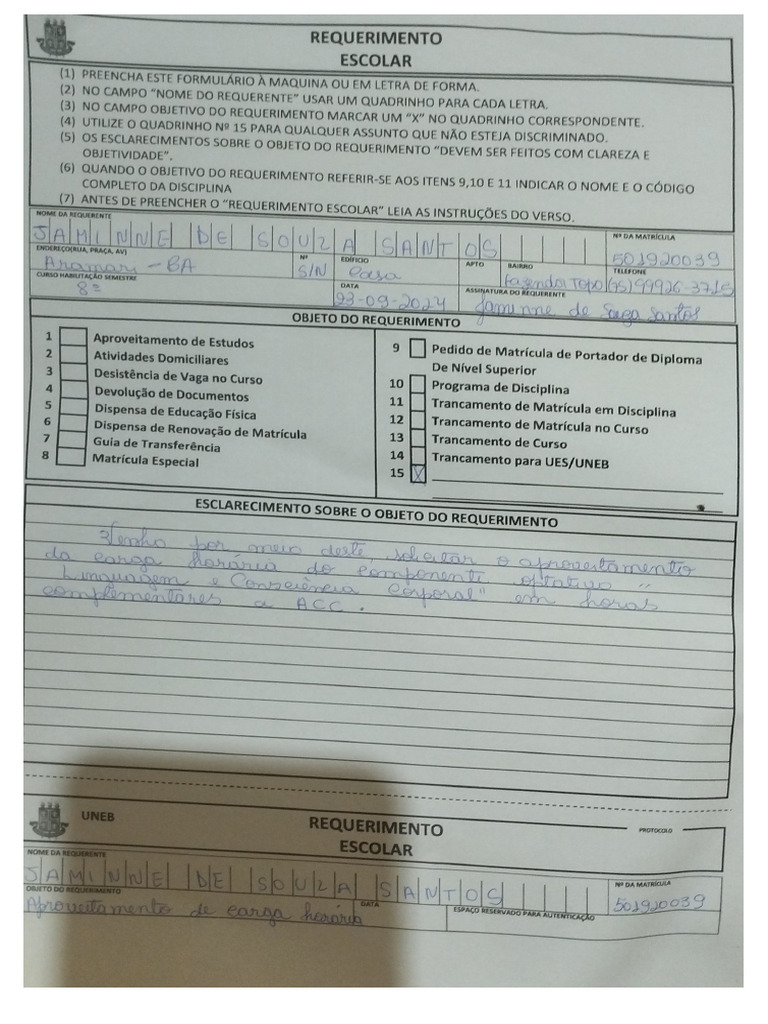 REQUERIMENTO
ESCOLAR
(1) PREENCHA ESTE FORMULÁRIO À MAQUINA OU EM LETRA DE FORMA.
(2) NO CAMPO "NOME DO REQUERENTE" USAR UM QUADRINHO PARA CADA LETRA.
(3) NO CAMPO OBJETIVO DO REQUERIMENTO MARCAR UM "X" NO QUADRINHO CORRESPONDENTE.
(4) UTILIZE O QUADRINHO Nº 15 PARA QUALQUER ASSUNTO QUE NÃO ESTEJA DISCRIMINADO.
(5) OS ESCLARECIMENTOS SOBRE O OBJETO DO REQUERIMENTO "DEVEM SER FEITOS COM CLAREZA E
OBJETIVIDADE".
(6) QUANDO O OBJETIVO DO REQUERIMENTO REFERIR-SE AOS ITENS 9,10 E 11 INDICAR O NOME E O CÓDIGO
COMPLETO DA DISCIPLINA
(7) ANTES DE PREENCHER O "REQUERIMENTO ESCOLAR" LEIA AS INSTRUÇÕES DO VERSO.
NOME DA REQUERENTE Nº DA MATRÍCULA
JAMINNE DE SOUZA SANTOS 501920039
ENDEREÇO(RUA, PRAÇA, AV) Nº EDIFÍCIO APTO BAIRRO TELEFONE
Aramari-BA S/N Casa Fazenda Topo (75)99926-3715
CURSO HABILITAÇÃO SEMESTRE DATA ASSINATURA DO REQUERENTE
8º 23-09-2024 Jaminne de Souza Santos
OBJETO DO REQUERIMENTO
1 Aproveitamento de Estudos
2 Atividades Domiciliares
3 Desistência de Vaga no Curso
4 Devolução de Documentos
5 Dispensa de Educação Física
6 Dispensa de Renovação de Matrícula
7 Guia de Transferência
8 Matrícula Especial
9 Pedido de Matrícula de Portador de Diploma
De Nível Superior
10 Programa de Disciplina
11 Trancamento de Matrícula em Disciplina
12 Trancamento de Matrícula no Curso
13 Trancamento de Curso
14 Trancamento para UES/UNEB
15 X
ESCLARECIMENTO SOBRE O OBJETO DO REQUERIMENTO
Venho por meio deste, solicitar o aproveitamento
da carga horária do componente optativo "
Linguagem e Consciência Corporal" em horas
complementares a ACC.
UNEB
REQUERIMENTO
ESCOLAR
PROTOCOLO
NOME DA REQUERENTE Nº DA MATRÍCULA
JAMINNE DE SOUZA SANTOS 501920039
OBJETO DO REQUERIMENTO DATA ESPAÇO RESERVADO PARA AUTENTICAÇÃO
Aproveitamento de carga horária